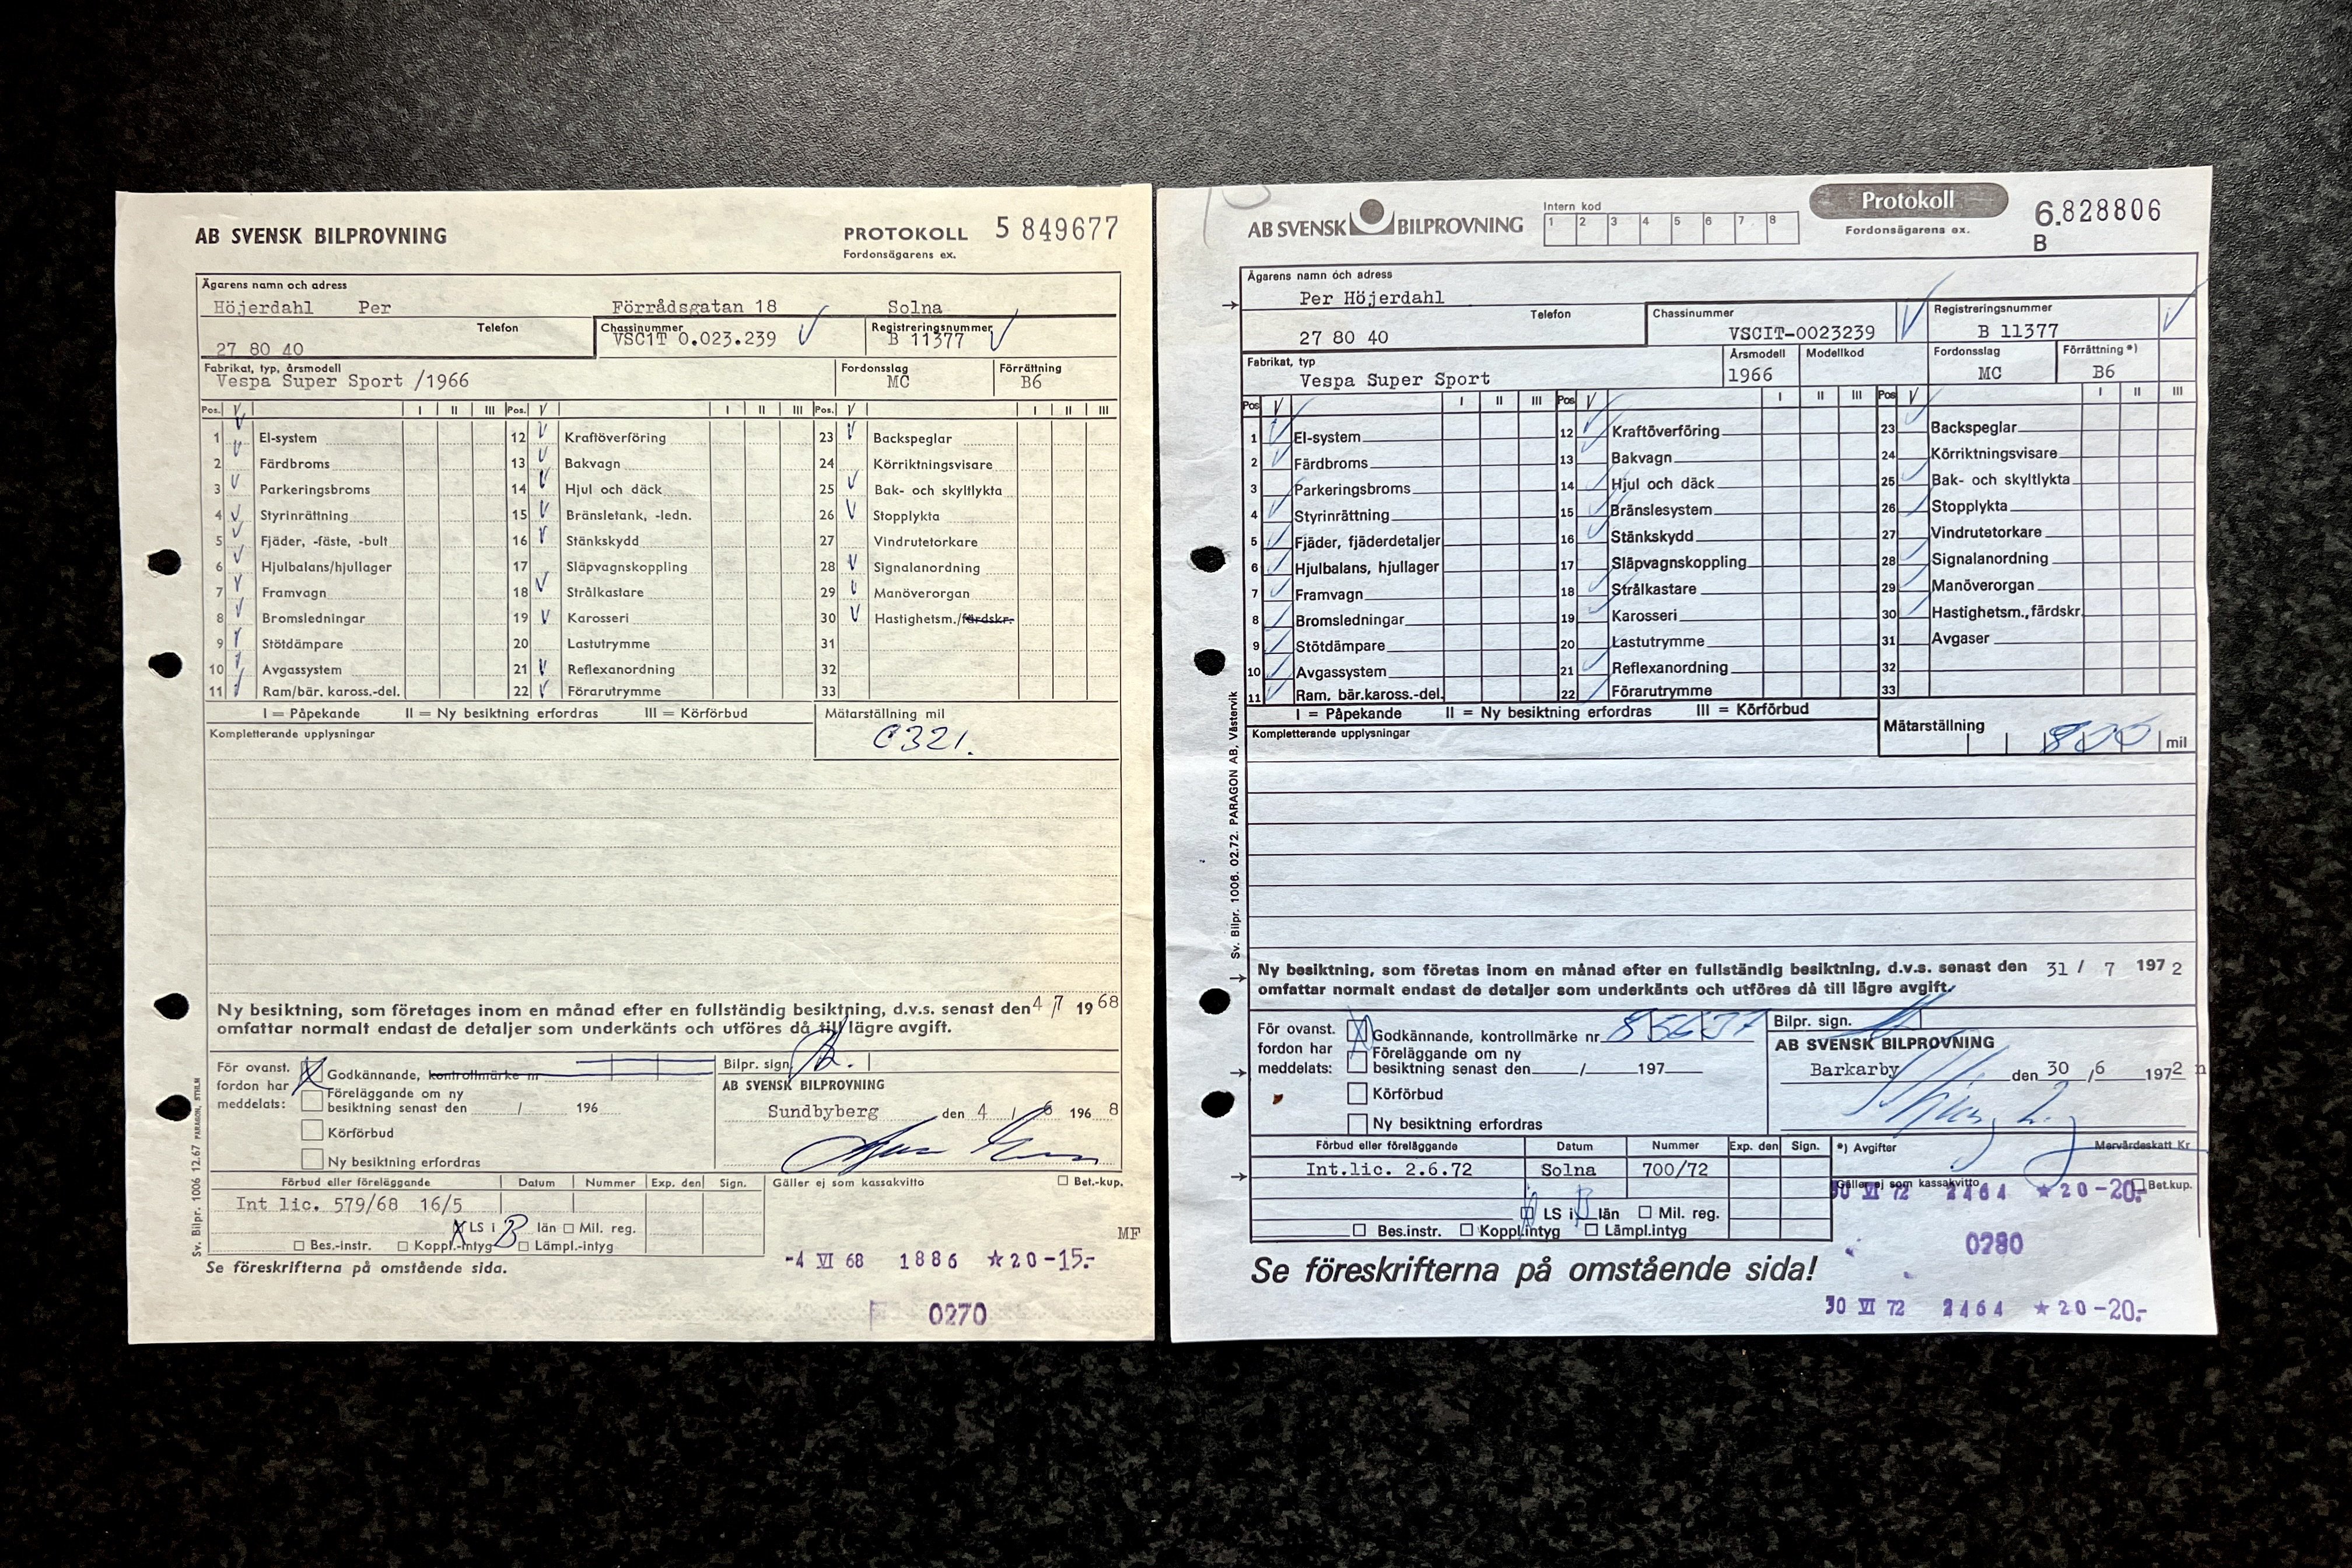 AB SVENSK BILPROVNING
PROTOKOLL 5 849677
Fordonsägarens ex.
Ägarens namn och adress
Höjerdahl Per Förrådsgatan 18 Solna
Telefon Chassinummer Registreringsnummer
27 80 40 VSC1T 0.023.239 B 11377
Fabrikat, typ, årsmodell Fordonsslag Förrättning
Vespa Super Sport /1966 MC B6
Pos. V I II III Pos. V I II III Pos. V I II III
1 El-system 12 Kraftöverföring 23 Backspeglar
2 Färdbroms 13 Bakvagn 24 Körriktningsvisare
3 Parkeringsbroms 14 Hjul och däck 25 Bak- och skyltlykta
4 Styrinrättning 15 Bränsletank, -ledn. 26 Stopplykta
5 Fjäder, -fäste, -bult 16 Stänkskydd 27 Vindrutetorkare
6 Hjulbalans/hjullager 17 Släpvagnskoppling 28 Signalanordning
7 Framvagn 18 Strålkastare 29 Manöverorgan
8 Bromsledningar 19 Karosseri 30 Hastighetsm./färdskr.
9 Stötdämpare 20 Lastutrymme 31
10 Avgassystem 21 Reflexanordning 32
11 Ram/bär. kaross.-del. 22 Förarutrymme 33
I = Påpekande II = Ny besiktning erfordras III = Körförbud Mätarställning mil
Kompletterande upplysningar
0321.
Ny besiktning, som företages inom en månad efter en fullständig besiktning, d.v.s. senast den 4/7 1968
omfattar normalt endast de detaljer som underkänts och utföres då till lägre avgift.
För ovanst. fordon har meddelats:
X Godkännande, kontrollmärke nr
Föreläggande om ny
besiktning senast den / 196
Körförbud
Ny besiktning erfordras
Bilpr. sign.
AB SVENSK BILPROVNING
Sundbyberg den 4 / 6 1968
Förbud eller föreläggande Datum Nummer Exp. den Sign.
Int lic. 579/68 16/5
X LS i B län Mil. reg.
Bes.-instr. Koppl.-intyg Lämpl.-intyg
Gäller ej som kassakvitto Bet.-kup.
MF
Se föreskrifterna på omstående sida.
-4 VI 68 1886 ★20-15.-
0270
Sv. Bilpr. 1006 12.67 PARAGON, STHLM
AB SVENSK BILPROVNING
Intern kod
1 2 3 4 5 6 7 8
Protokoll
Fordonsägarens ex.
6.828806
B
Ägarens namn och adress
Per Höjerdahl
Telefon Chassinummer Registreringsnummer
27 80 40 VSCIT-0023239 B 11377
Fabrikat, typ Årsmodell Modellkod Fordonsslag Förrättning *)
Vespa Super Sport 1966 MC B6
Pos V I II III Pos V I II III Pos V I II III
1 El-system 12 Kraftöverföring 23 Backspeglar
2 Färdbroms 13 Bakvagn 24 Körriktningsvisare
3 Parkeringsbroms 14 Hjul och däck 25 Bak- och skyltlykta
4 Styrinrättning 15 Bränslesystem 26 Stopplykta
5 Fjäder, fjäderdetaljer 16 Stänkskydd 27 Vindrutetorkare
6 Hjulbalans, hjullager 17 Släpvagnskoppling 28 Signalanordning
7 Framvagn 18 Strålkastare 29 Manöverorgan
8 Bromsledningar 19 Karosseri 30 Hastighetsm., färdskr.
9 Stötdämpare 20 Lastutrymme 31 Avgaser
10 Avgassystem 21 Reflexanordning 32
11 Ram. bär.kaross.-del. 22 Förarutrymme 33
I = Påpekande II = Ny besiktning erfordras III = Körförbud
Kompletterande upplysningar
Mätarställning 800 mil
Ny besiktning, som företas inom en månad efter en fullständig besiktning, d.v.s. senast den 31 / 7 1972
omfattar normalt endast de detaljer som underkänts och utföres då till lägre avgift.
För ovanst. fordon har meddelats:
X Godkännande, kontrollmärke nr
Föreläggande om ny
besiktning senast den / 197
Körförbud
Ny besiktning erfordras
Bilpr. sign.
AB SVENSK BILPROVNING
Barkarby den 30 /6 1972
Förbud eller föreläggande Datum Nummer Exp. den Sign.
Int.lic. 2.6.72 Solna 700/72
LS i B län Mil. reg.
Bes.instr. Koppl.intyg Lämpl.intyg
*) Avgifter Mervärdeskatt Kr
Gäller ej som kassakvitto Bet.kup.
30 VI 72 2464 ★20-20.-
0280
Se föreskrifterna på omstående sida!
30 VI 72 2464 ★20-20.-
Sv. Bilpr. 1006. 02.72. PARAGON AB, Västervik